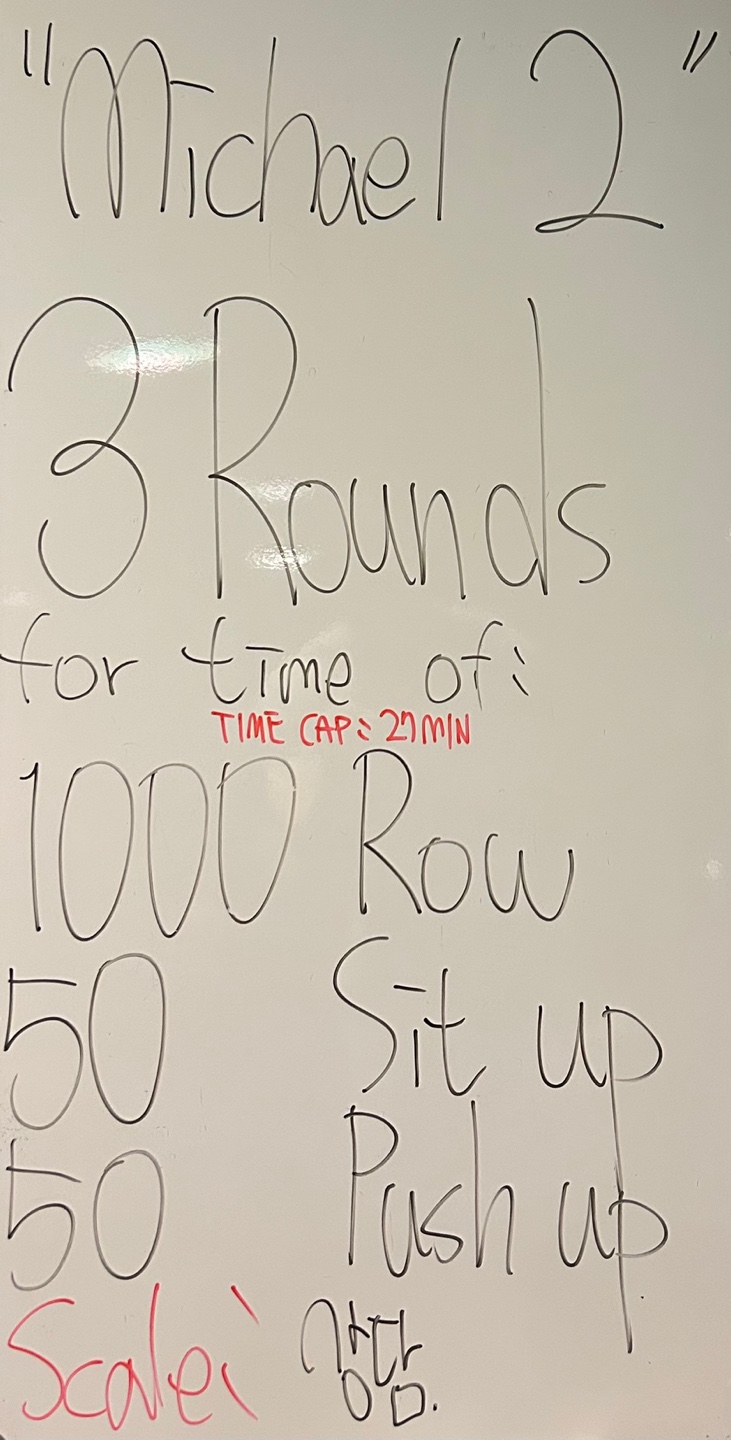 "Michael 2"
3 Rounds
for time of:
TIME CAP: 27MIN
1000 Row
50 Sit up
50 Push up
Scale: 상담.